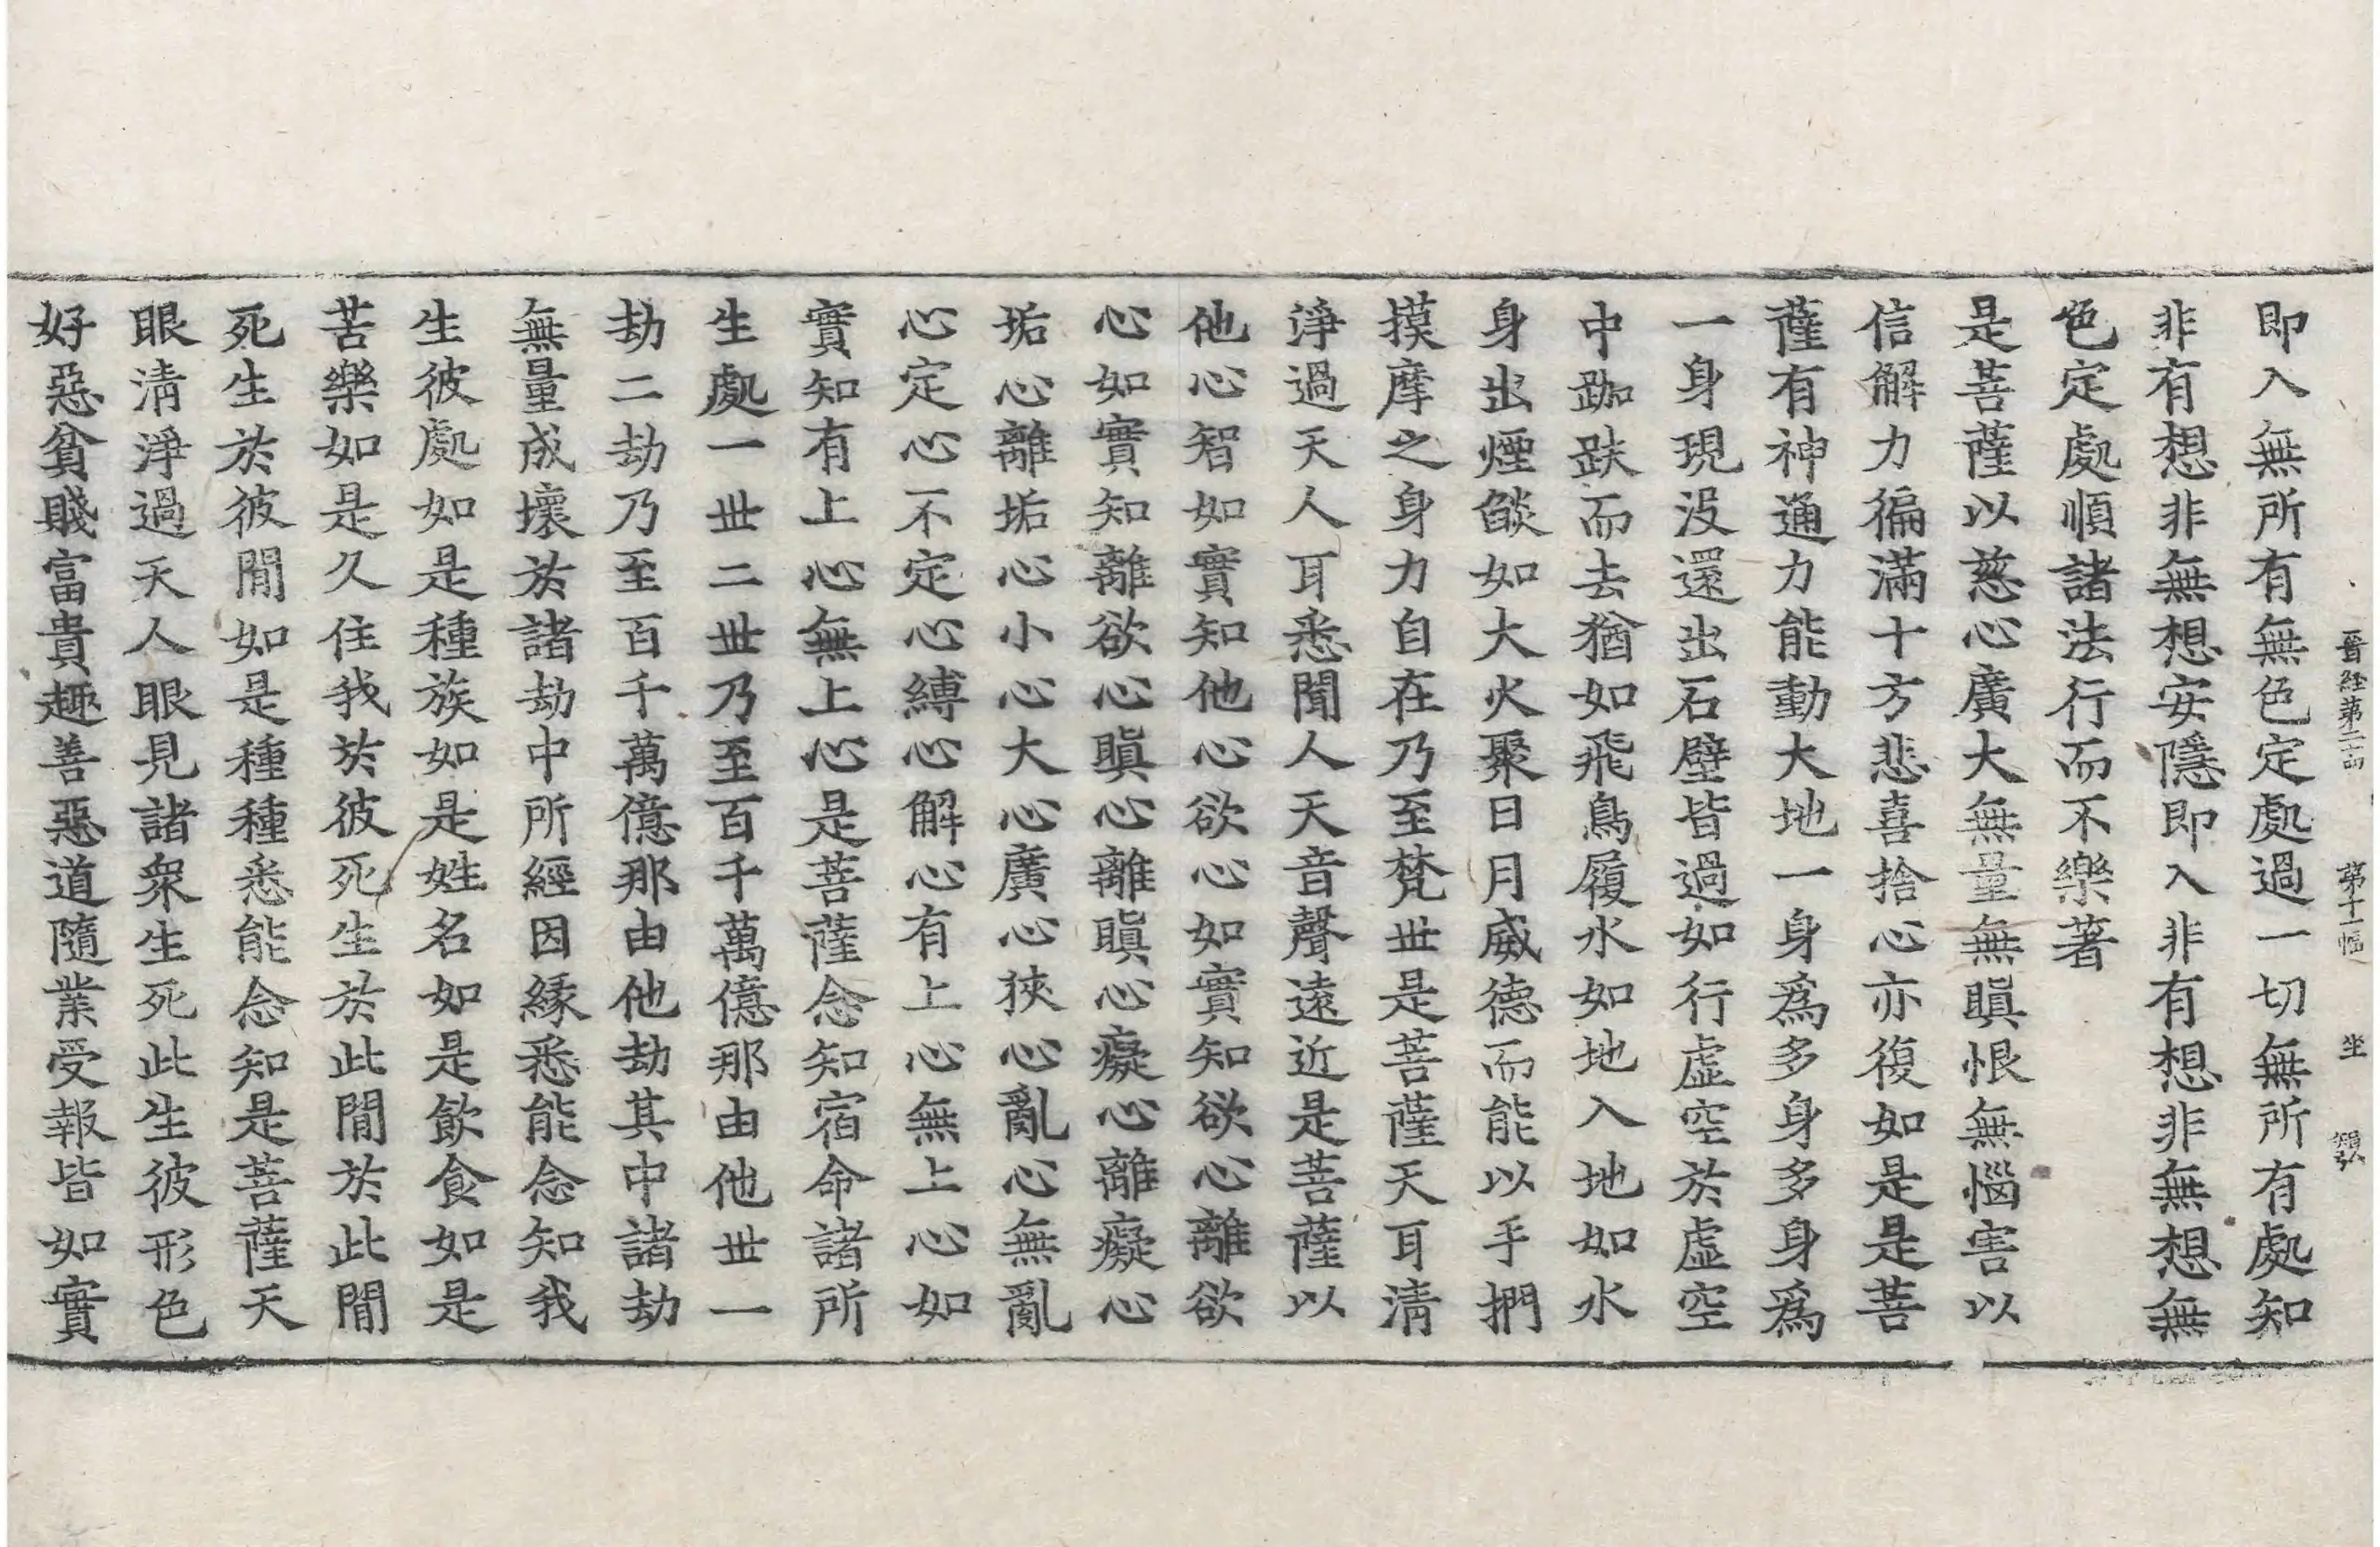 晉経第二十四　第十二幅　坐
即入無所有無色定處過一切無所有處知
非有想非無想安隱即入非有想非無想無
色定處順諸法行而不樂著
是菩薩以慈心廣大無量無瞋恨無惱害以
信解力徧滿十方悲喜捨心亦復如是是菩
薩有神通力能動大地一身爲多身多身爲
一身現没還出石壁皆過如行虚空於虚空
中跏趺而去猶如飛鳥履水如地入地如水
身出煙燄如大火聚日月威德而能以手捫
摸摩之身力自在乃至梵丗是菩薩天耳清
淨過天人耳悉聞人天音聲遠近是菩薩以
他心智如實知他心欲心如實知欲心離欲
心如實知離欲心瞋心離瞋心癡心離癡心
垢心離垢心小心大心廣心狹心亂心無亂
心定心不定心縛心解心有上心無上心如
實知有上心無上心是菩薩念知宿命諸所
生處一丗二丗乃至百千萬億那由他丗一
劫二劫乃至百千萬億那由他劫其中諸劫
無量成壞於諸劫中所經因緣悉能念知我
生彼處如是種族如是姓名如是飲食如是
苦樂如是久住我於彼死生於此閒於此閒
死生於彼閒如是種種悉能念知是菩薩天
眼清淨過天人眼見諸衆生死此生彼形色
好惡貧賤富貴趣善惡道隨業受報皆如實